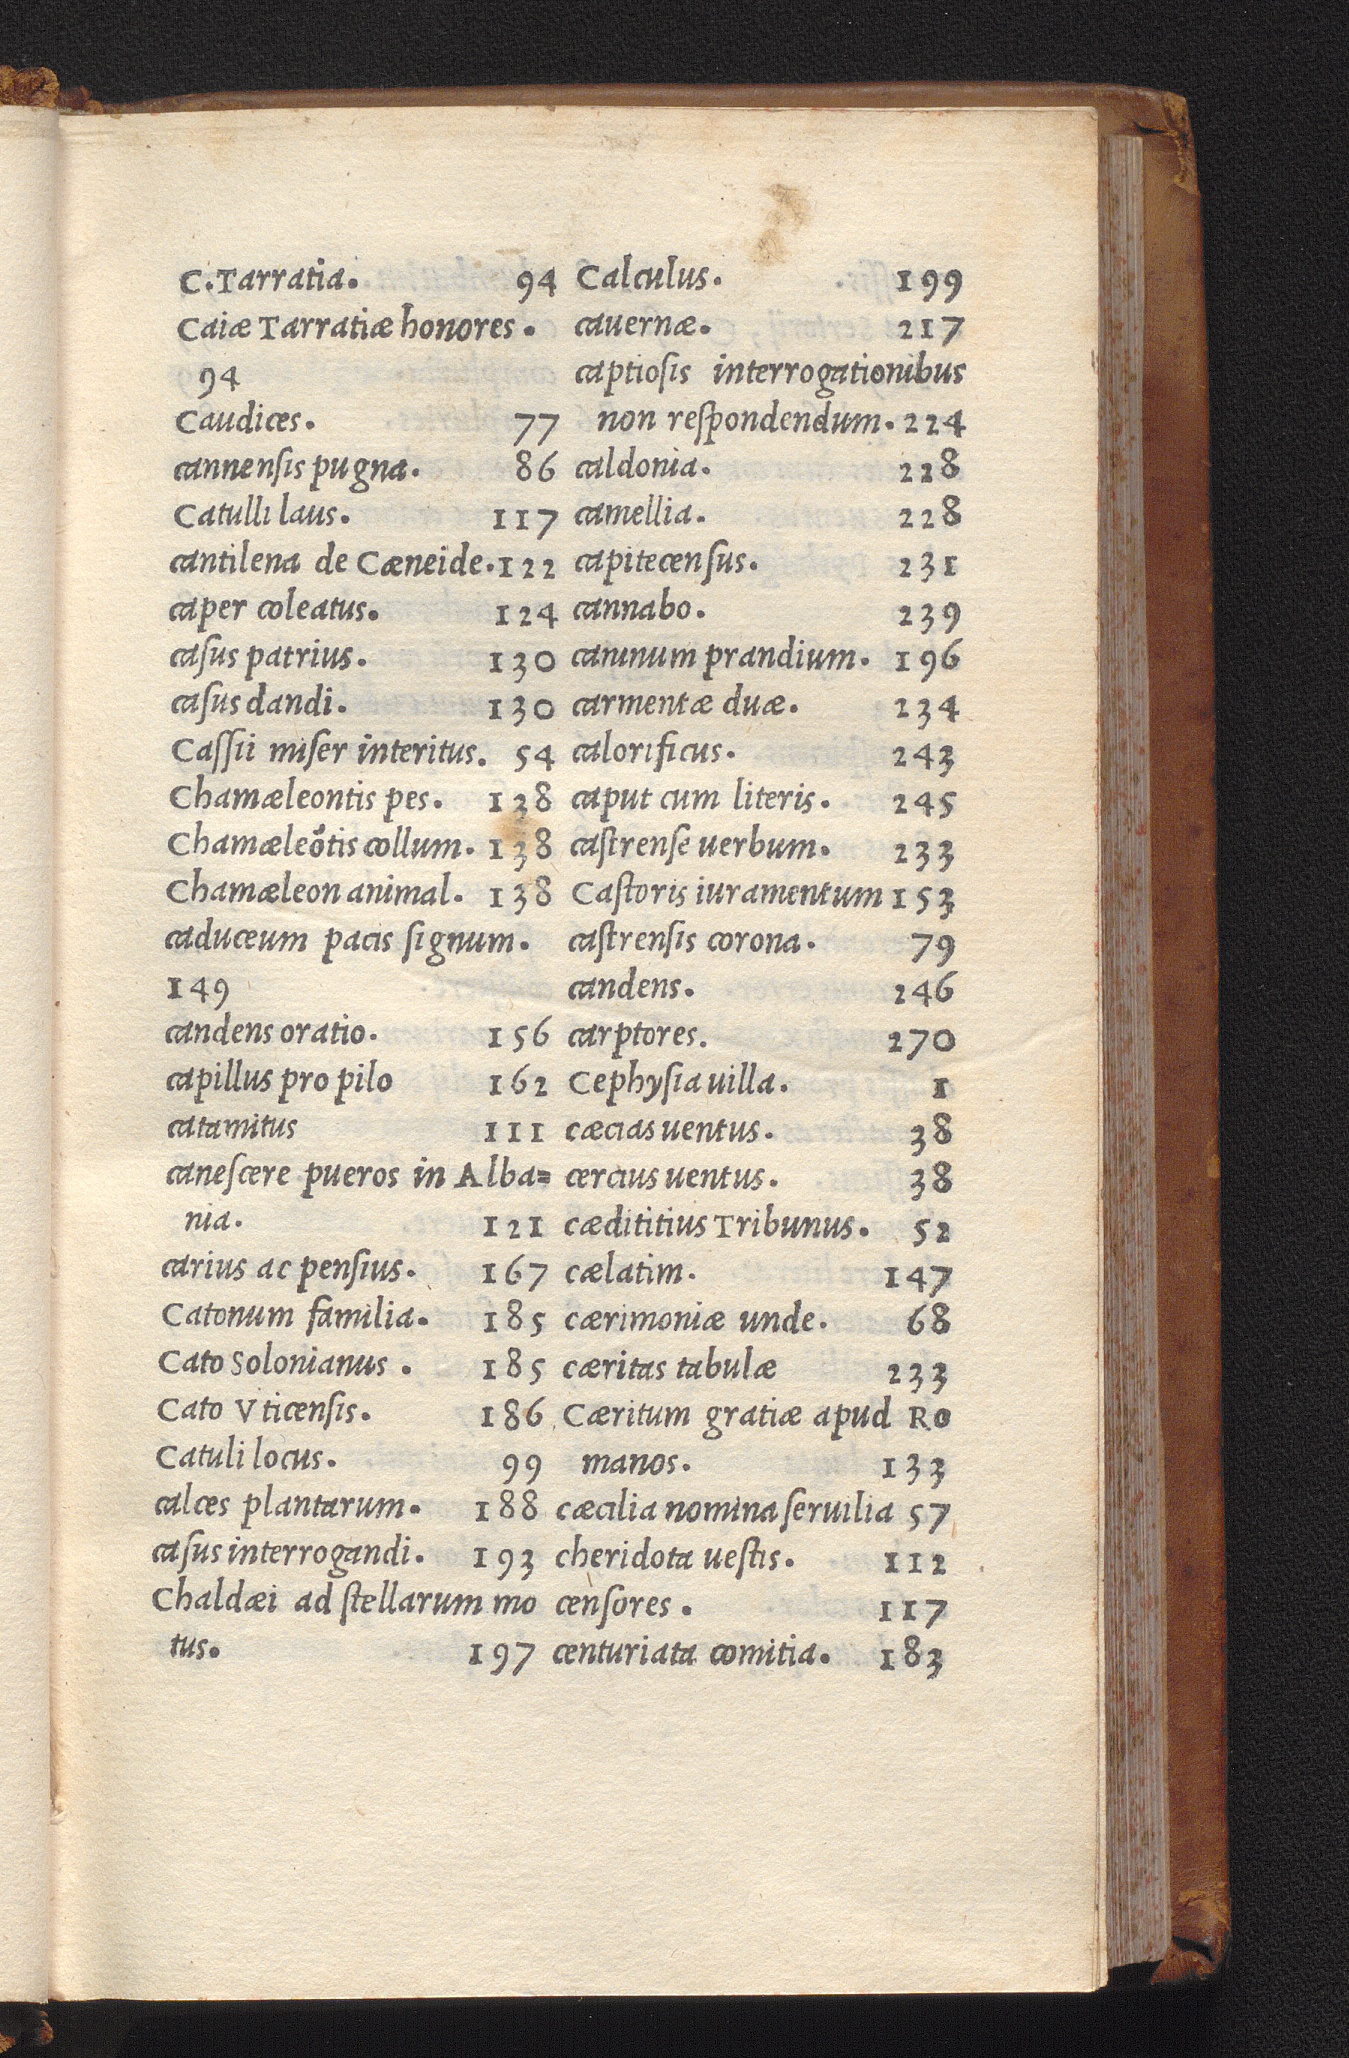 C. Tarratia. 94
Caiæ Tarratiæ honores.
94
Caudices. 77
cannenſis pugna. 86
Catulli laus. 117
cantilena de Cæneide. 122
caper coleatus. 124
caſus patrius. 130
caſus dandi. 130
Caſſii miſer interitus. 54
Chamæleontis pes. 138
Chamæleõtis collum. 138
Chamæleon animal. 138
caduceum pacis ſignum.
149
candens oratio. 156
capillus pro pilo 162
catamitus 111
caneſcere pueros in Alba=
nia. 121
carius ac penſius. 167
Catonum familia. 185
Cato Solonianus. 185
Cato Vticenſis. 186
Catuli locus. 99
calces plantarum. 188
caſus interrogandi. 193
Chaldæi ad ſtellarum mo
tus. 197
Calculus. 199
cauernæ. 217
captioſis interrogationibus
non reſpondendum. 224
caldonia. 228
camellia. 228
capitecenſus. 231
cannabo. 239
caninum prandium. 196
carmentæ duæ. 234
calorificus. 243
caput cum literis. 245
caſtrenſe uerbum. 233
Caſtoris iuramentum 153
caſtrenſis corona. 79
candens. 246
carptores. 270
Cephyſia uilla. 1
cæcias uentus. 38
cercius uentus. 38
cædititius Tribunus. 52
cælatim. 147
cærimoniæ unde. 68
cæritas tabulæ 233
Cæritum gratiæ apud Ro
manos. 133
cæcilia nomina ſeruilia 57
cheridota ueſtis. 112
cenſores. 117
centuriata comitia. 183